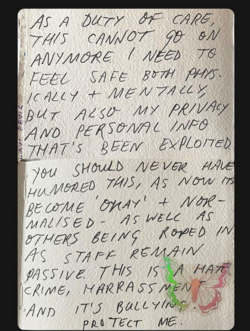 AS A DUTY OF CARE,
THIS CANNOT GO ON
ANYMORE I NEED TO
FEEL SAFE BOTH PHYS.
ICALLY + MENTALLY,
BUT ALSO MY PRIVACY
AND PERSONAL INFO
THAT'S BEEN EXPLOITED
YOU SHOULD NEVER HAVE
HUMORED THIS, AS NOW ITS
BECOME 'OKAY' + NOR-
MALISED - AS WELL AS
OTHERS BEING ROPED IN
AS STAFF REMAIN
PASSIVE THIS IS A HATE
CRIME, HARRASSMENT
AND IT'S BULLYING
PROTECT ME.